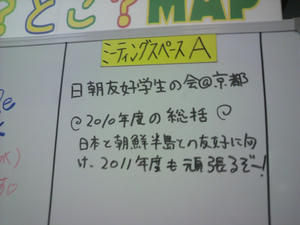 ?どこ?MAP
ミーティングスペースA
日朝友好学生の会@京都
@2010年度の総括@
日本と朝鮮半島との友好に向
け、2011年度も頑張るぞー!